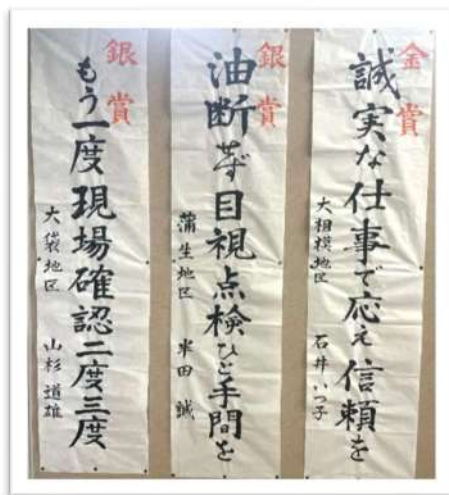 金賞
誠実な仕事で応え信頼を
大相模地区 石井 いつ子
銀賞
油断せず目視点検ひと手間を
蒲生地区 半田 誠
銀賞
もう一度現場確認二度三度
大袋地区 山杉 道雄